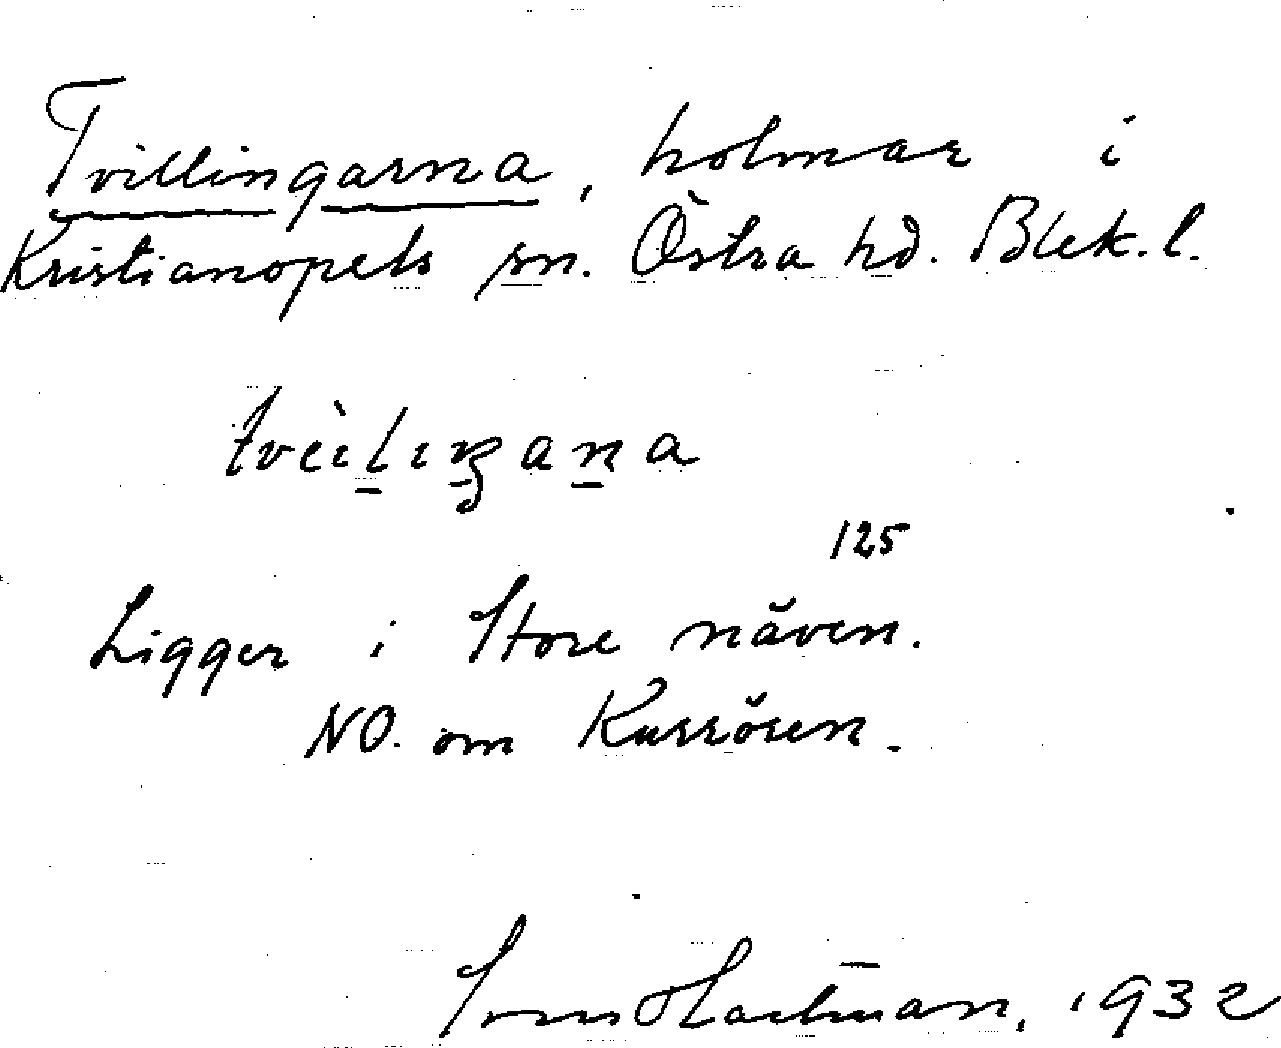 Tvillingarna, holmar i
Kristianopels sn. Östra hd. Blek. l.
125
Ligger i Store näven.
NO. om Kurrören.
Hartman, 1932